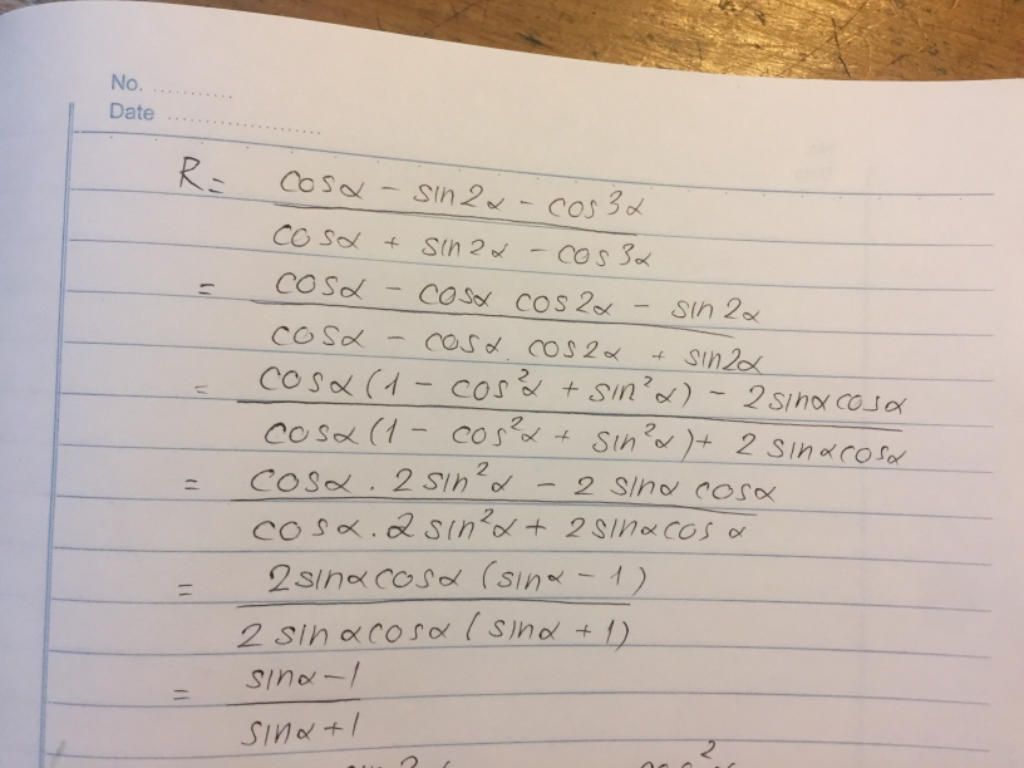 No. ............
Date ........................
R = cosα − sin2α − cos3α
cosα + sin2α − cos3α
= cosα − cosα cos2α − sin2α
cosα − cosα. cos2α + sin2α
= cosα(1 − cos²α + sin²α) − 2sinαcosα
cosα(1 − cos²α + sin²α) + 2 sinαcosα
= cosα . 2 sin²α − 2 sinα cosα
cosα . 2 sin²α + 2 sinαcosα
= 2sinαcosα (sinα − 1)
2 sinαcosα (sinα + 1)
= sinα − 1
sinα + 1